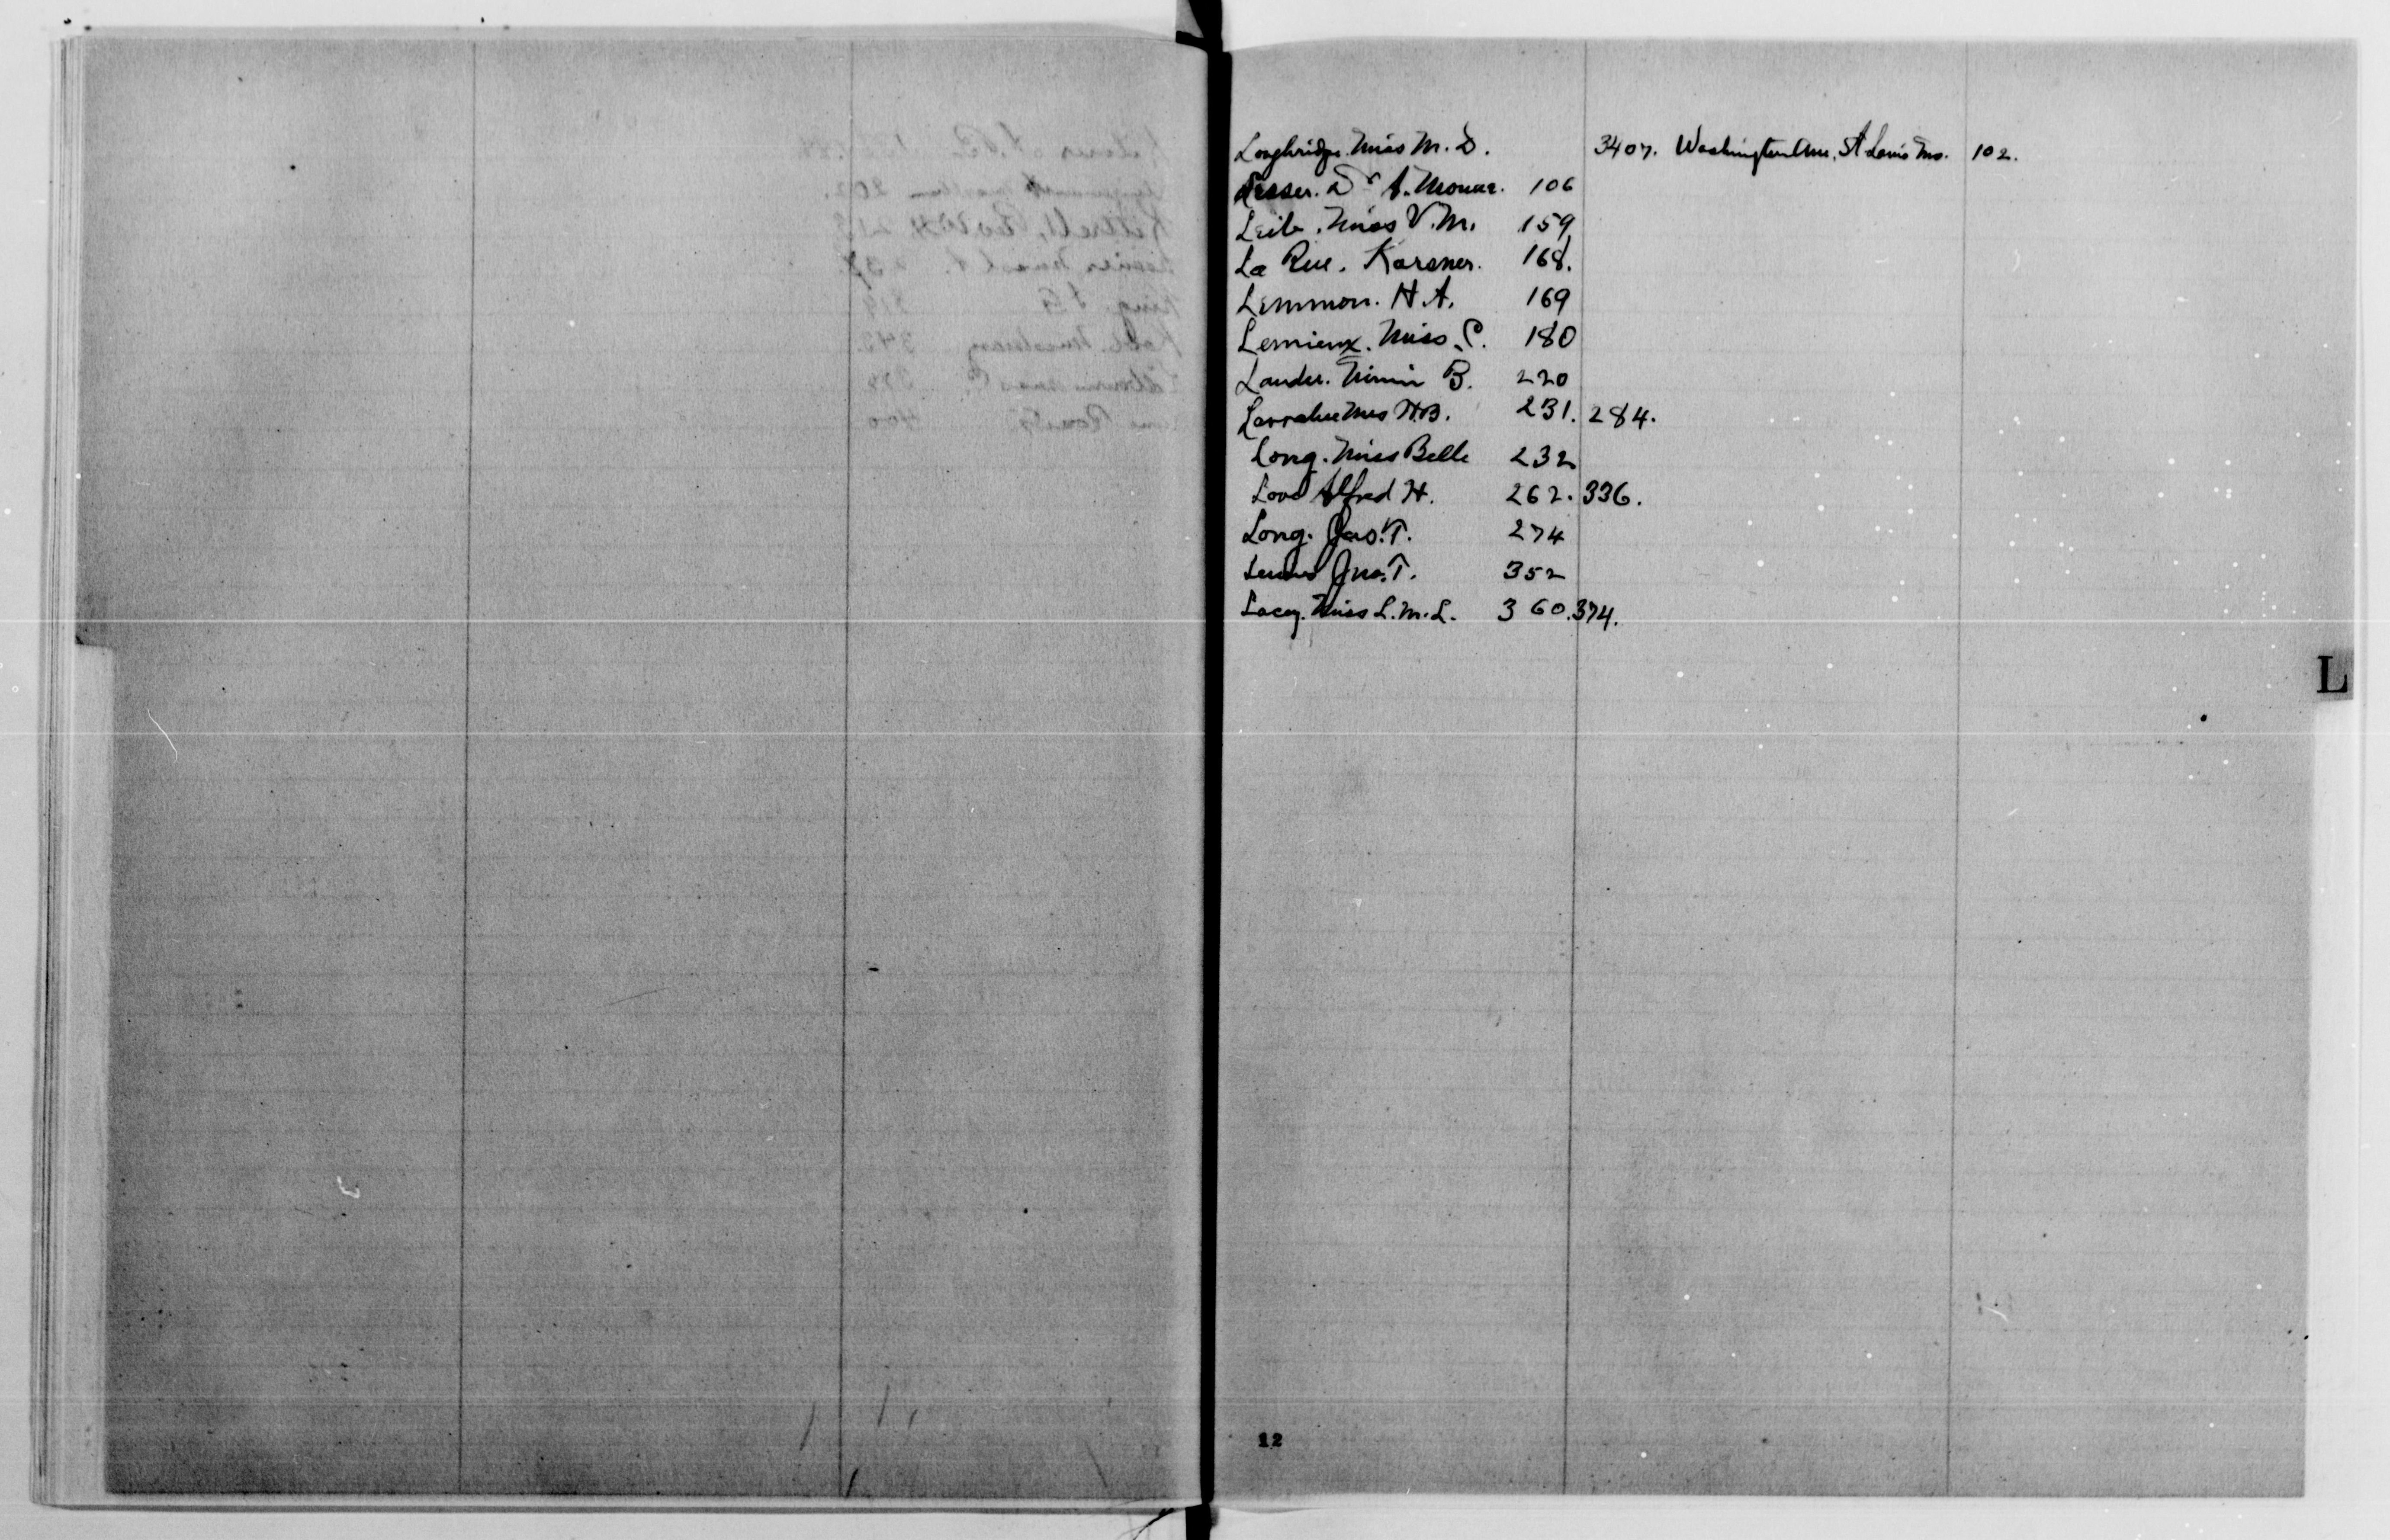 Loughridge. Miss M. D. 3407. Washington Ave. St Louis Mo. 102.
Lesser. Dr A. Monae. 106
Leib. Miss V. M. 159
La Rue. Karsner. 168.
Lemmon. H. A. 169
Lemieux. Miss C. 180
Lander. B. 220
Larrabee Mrs H.B. 231. 284.
Long. Miss Belle 232
Love Alfred H. 262. 336.
Long. Jas. T. 274
Jno. T. 352
Lacey. Miss L. M. L. 360. 374.
L
12